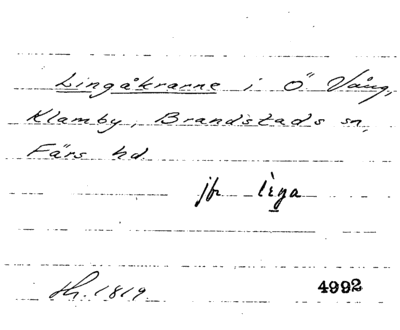 Lingåkrarne i Ö Vång,
Klamby, Brandstads sn,
Färs hd
jfr
sk. 1819 4992